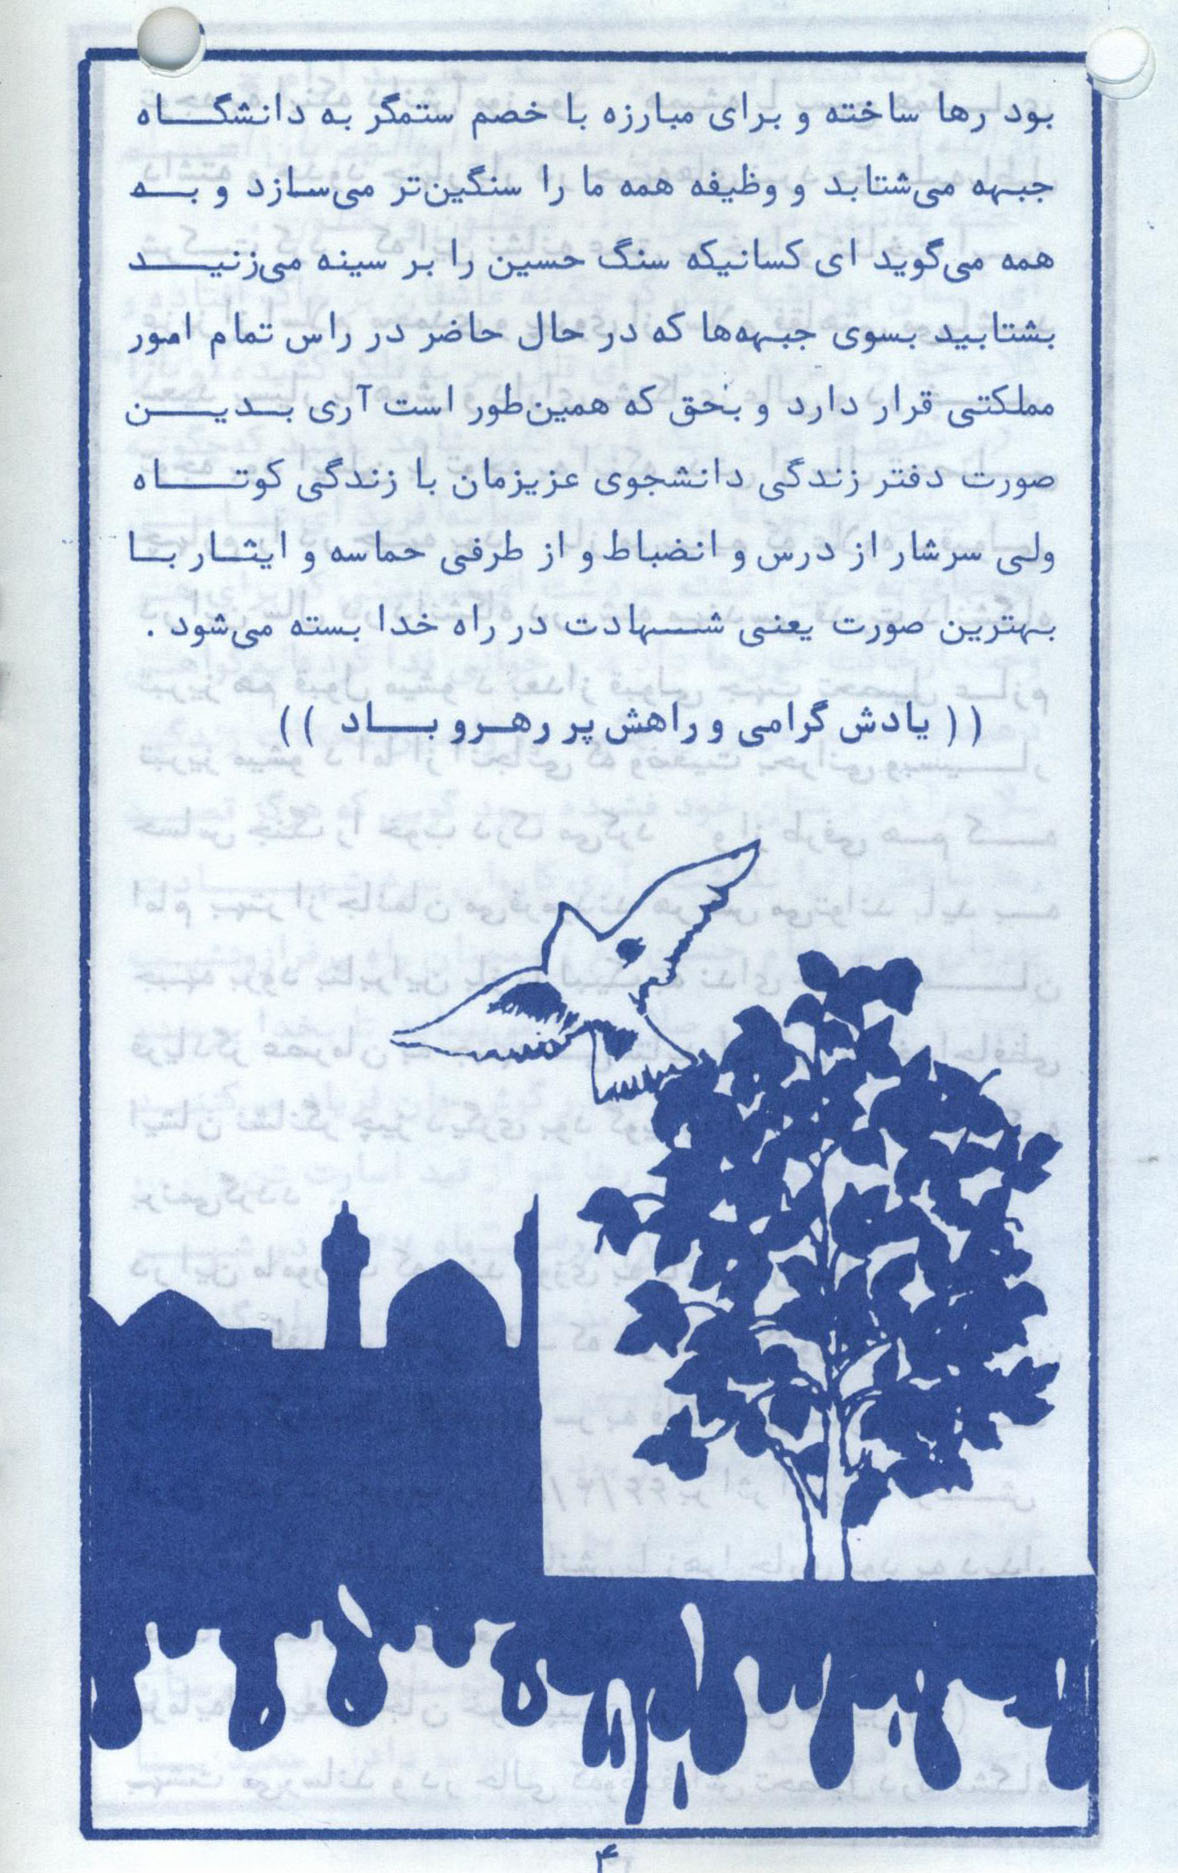 بود رها ساخته و برای مبارزه با خصم ستمگر به دانشگاه
جبهه می‌شتابد و وظیفه همه ما را سنگین‌تر می‌سازد و به
همه می‌گوید ای کسانیکه سنگ حسین را بر سینه می‌زنید
بشتابید بسوی جبهه‌ها که در حال حاضر در راس تمام امور
مملکتی قرار دارد و بحق که همین‌طور است آری بدین
صورت دفتر زندگی دانشجوی عزیزمان با زندگی کوتاه
ولی سرشار از درس و انضباط و از طرفی حماسه و ایثار با
بهترین صورت یعنی شهادت در راه خدا بسته می‌شود .
(( یادش گرامی و راهش پر رهرو باد ))
۴